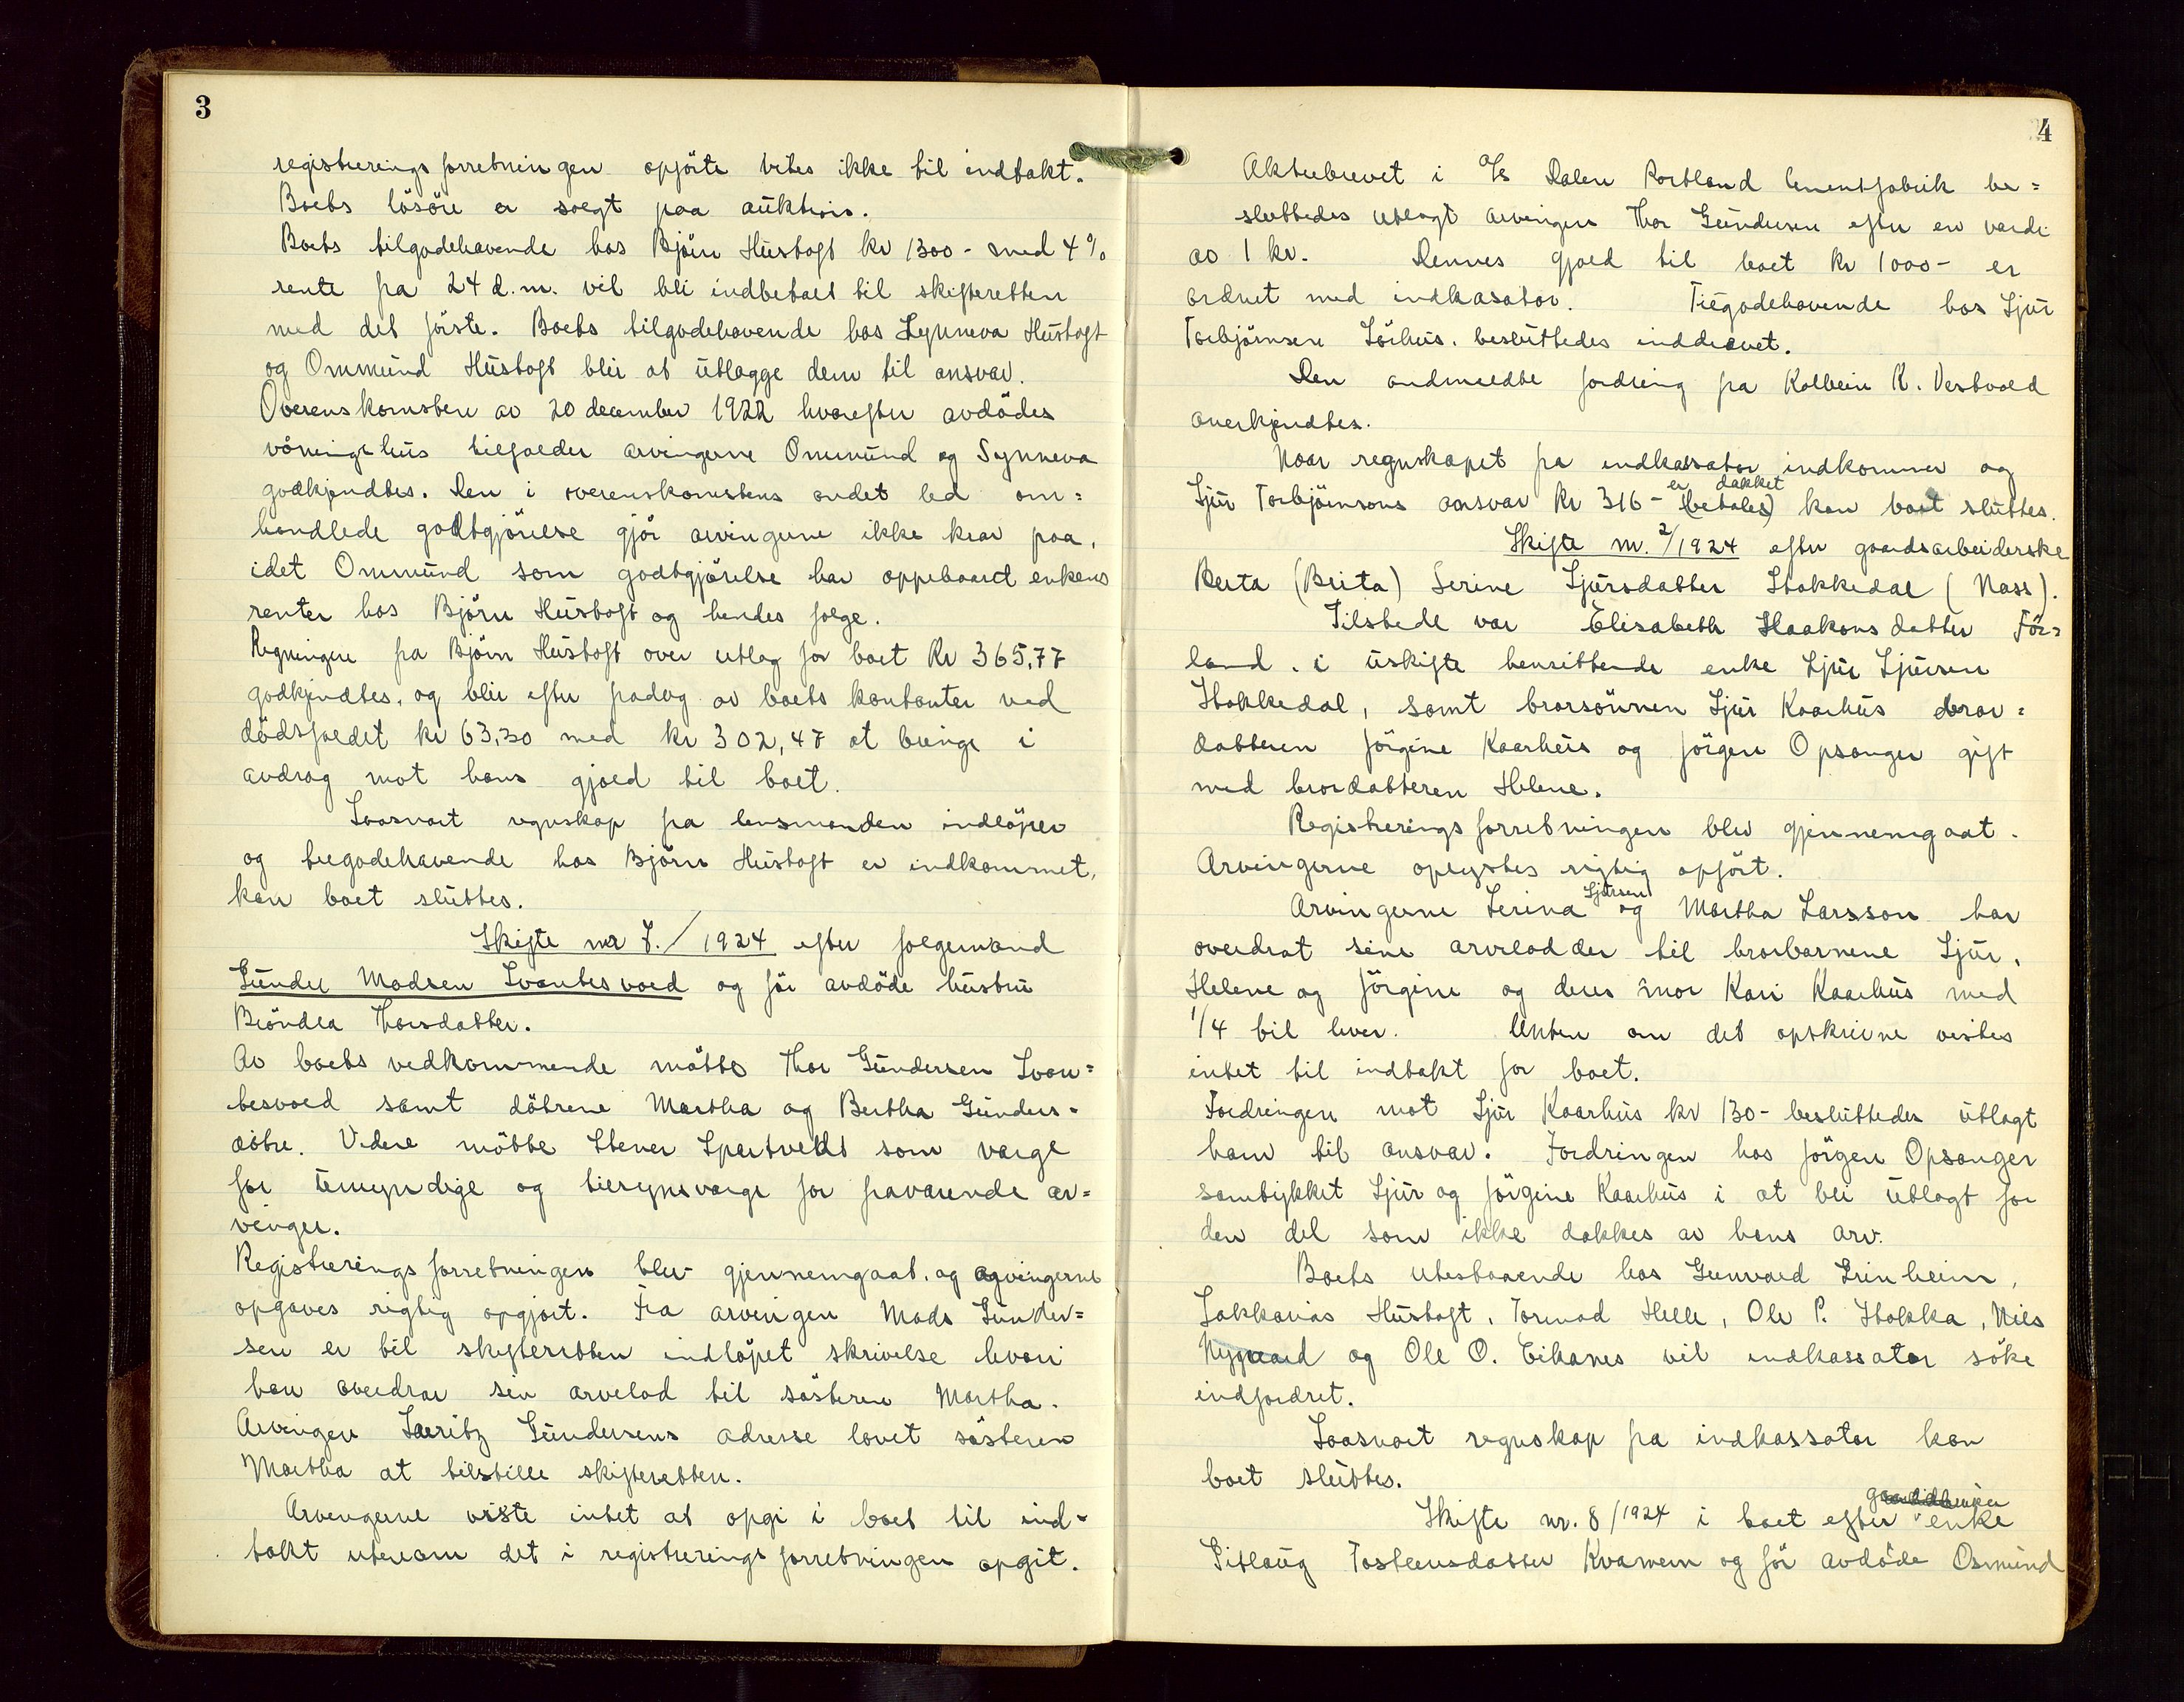 3
registreringsforretningen opförte vites ikke til indtækt.
Boets lösöre er solgt paa auktion.
Boets tilgodehavende hos Björn Hüstoft kr 1300 - med 4%
rente fra 24 d.m. vil bli indbetalt til skifteretten
med det förste. Boets tilgodehavende hos Synneva Hüstoft
og Ommünd Hüstoft blir at ütlægge dem til ansvar.
Overenskomsten av 20 december 1922 hvorefter avdödes
våningshüs tilfalder arvingerne Ommünd og Synneva
godkjendtes. Den i overenskomstens andet led om=
handlede godtgjörelse gjör arvingerne ikke krav paa,
idet Ommünd som godtgjörelse har oppebaaret enkens
renter hos Björn Hüstoft og hendes følge.
Regningen fra Björn Hüstoft over utlæg for boet kr 365,77
godkjendtes, og blir efter fradrag av boets kontanter ved
dödsfaldet kr 63,30 med kr 302,47 at bringe i
avdrag mot hans gjæld til boet.
Saasnart regnskap fra lensmanden indlöper
og tilgodehavende hos Björn Hüstoft er indkommet,
kan boet slüttes.
Skifte nr 7./1924 efter folgemand
Günder Madsen Svantesvold og för avdöde hüstrü
Bröndla Thorsdatter.
Av boets vedkommende mötte Thor Gündersen Svan=
tesvold samt dötrene Martha og Bertha Günders=
dötre. Videre mötte Stener Spartveldt som værge
for ümyndige og tilsynsværge for fraværende ar=
vinger.
Registreringsforretningen blev gjennemgaat, og arvingerne
opgaves rigtig opgjort. Fra arvingen Mads Günder=
sen er til skifteretten indlöpet skrivelse hvori
han overdrar sin arvelod til sösteren Martha.
Arvingen Lauritz Gündersens adresse lovet sösteren
Martha at tilstille skifteretten.
Arvingerne viste intet at opgi i boet til ind=
tækt utenom det i registreringsforretningen opgit.
4
Aktiebrevet i A/s Dalen Portland Cementfabrik be=
sluttedes utlagt arvingen Thor Gündersen efter en værdi
av 1 kr. Dennes gjæld til boet kr 1000- er
ordnet med indkasator. Tilgodehavende hos Sjür
Torbjörnsen Sörhüs. beslüttedes inddrevet.
Den anmeldte fordring fra Kolbein K. Vestvold
anerkjendtes.
Naar regnskapet fra indkassator indkommer og
Sjür Torbjörnsons ansvar kr 316- er dækket (betales) kan boet slüttes.
Skifte nr. 2/1924 efter gaardsarbeiderske
Berta (Brita) Serine Sjürsdatter Stokkedal (Næss).
Tilstede var Elisabeth Haakonsdatter För=
land. i üskifte hensittende enke Sjür Sjürsen
Stokkedal, samt brorsönnen Sjür Kaarhüs bror=
datteren Jörgine Kaarhüs og Jörgen Opsanger gift
med brordatteren Helene.
Registreringsforretningen blev gjennemgaat.
Arvingerne oplystes rigtig opfört.
Arvingerne Serina Sjürsen og Martha Larsson har
overdrat sine arvelodder til brorbarnene Sjür,
Helene og Jörgine og deres mor Kari Kaarhüs med
1/4 til hver. Uten om det opskrivne vistes
intet til indtækt for boet.
Fordringen mot Sjür Kaarhüs kr 130- beslüttedes ütlagt
ham til ansvar. Fordringen hos Jörgen Opsanger
samtykket Sjür og Jörgine Kaarhüs i at bli ütlagt for
den del som ikke dækkes av hans arv.
Boets utestaaende hos Gunvald Grinheim,
Sakkarias Hüstoft, Tormod Helle, Ole P. Stokka, Nils
Nygaard og Ole O. Eikanes vil indkassator söke
indfordret.
Saasnart regnskap fra indkassator kan
boet slüttes.
Skifte nr. 8/1924 i boet efter enke
Sitlaug Tosteensdatter Kvamem og för avdöde Osmünd